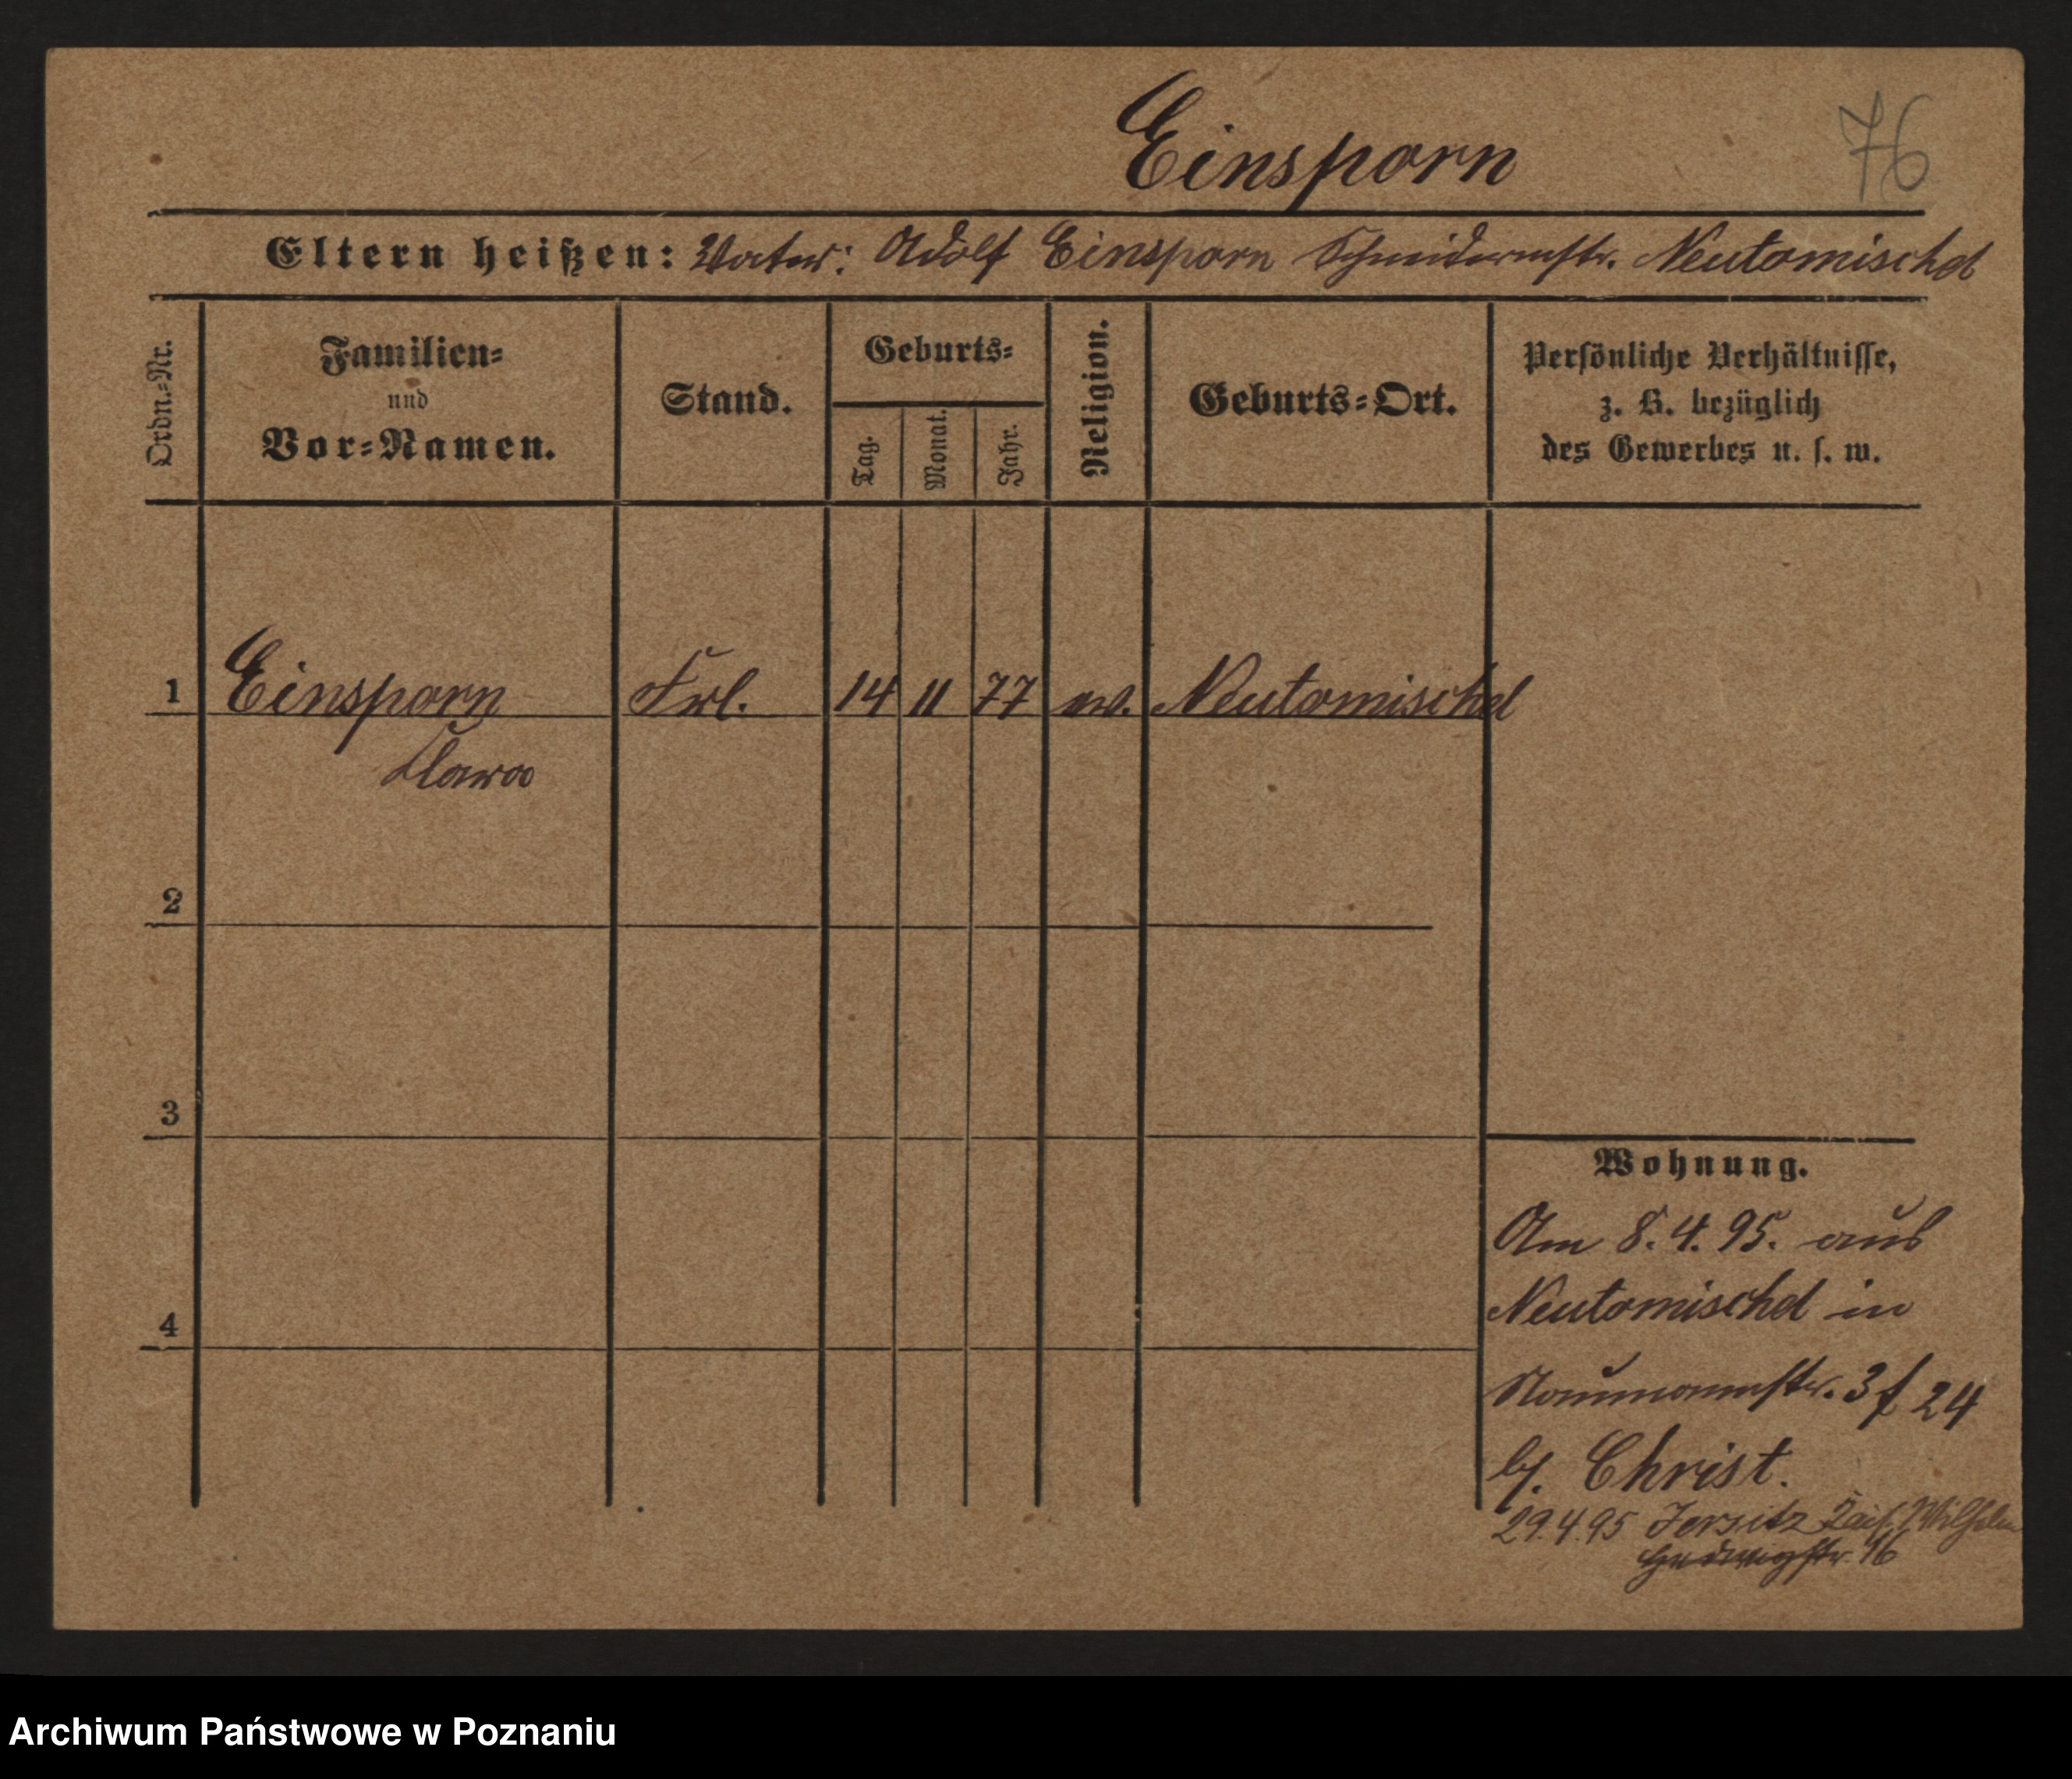 Einsporn
76
Eltern heißen: Vater: Adolf Einsporn Schneidermstr. Neutomischel
Ordn.=Nr.
Familien=
und
Vor=Namen.
Stand.
Geburts=
Tag.
Monat.
Jahr.
Religion.
Geburts=Ort.
Persönliche Verhältnisse,
z. B. bezüglich
des Gewerbes u. s. w.
1 Einsporn Frl. 14 11 77 ev. Neutomischel
Klara
2
3
4
Wohnung.
Am 8. 4. 95. aus
Neutomischel in
Naumannstr. 3 f 24
bj. Christ.
29.4.95 Jersitz Kais. Wilhelm
Hedwigstr. 16
Archiwum Państwowe w Poznaniu